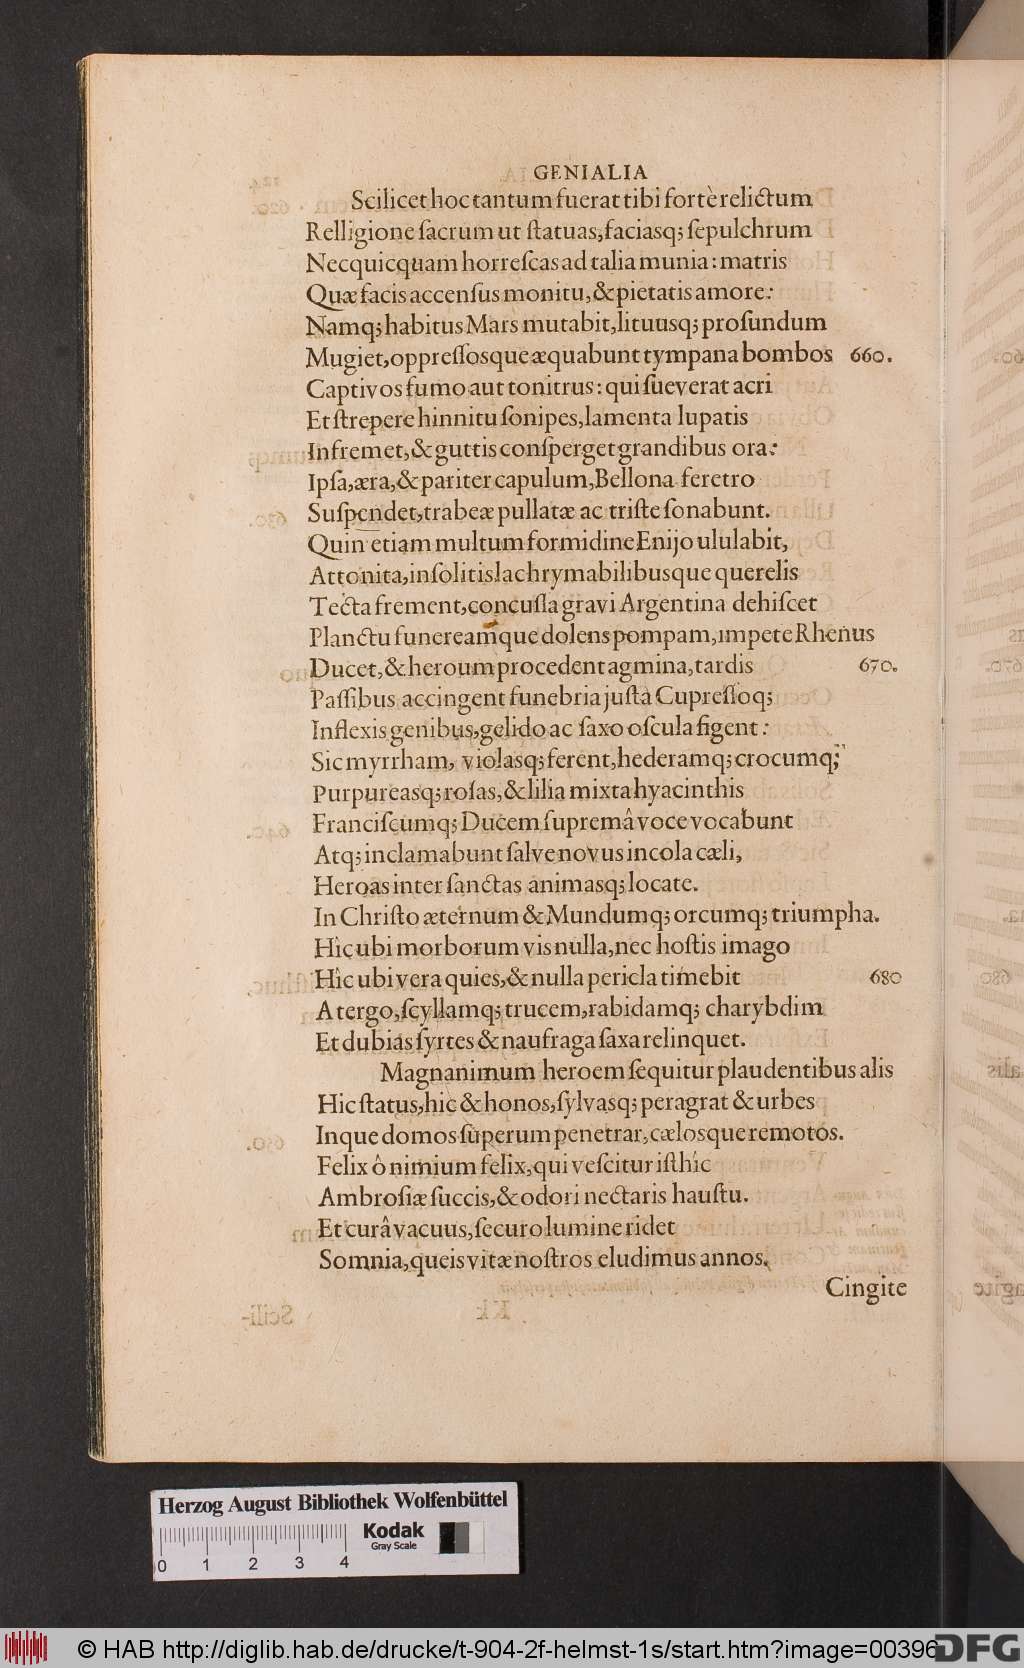 GENIALIA
Scilicet hoc tantum fuerat tibi fortè relictum
Relligione ſacrum ut ſtatuas, faciasq; ſepulchrum
Necquicquam horreſcas ad talia munia: matris
Quæ facis accenſus monitu, & pietatis amore:
Namq; habitus Mars mutabit, lituusq; profundum
Mugiet, oppreſſosque æquabunt tympana bombos 660.
Captivos fumo aut tonitrus: qui ſueverat acri
Et ſtrepere hinnitu ſonipes, lamenta lupatis
Infremet, & guttis conſperget grandibus ora:
Ipſa, æra, & pariter capulum, Bellona feretro
Suſpendet, trabeæ pullatæ ac triſte ſonabunt.
Quin etiam multum formidine Enijo ululabit,
Attonita, inſolitis lachrymabilibusque querelis
Tecta frement, concuſſa gravi Argentina dehiſcet
Planctu funereamque dolens pompam, impete Rhenus
Ducet, & heroum procedent agmina, tardis 670.
Paſſibus accingent funebria juſta Cupreſſoq;
Inflexis genibus, gelido ac ſaxo oſcula figent:
Sic myrrham, violasq; ferent, hederamq; crocumq;
Purpureasq; roſas, & lilia mixta hyacinthis
Franciſcumq; Ducem ſupremâ voce vocabunt
Atq; inclamabunt ſalve novus incola cæli,
Heroas inter ſanctas animasq; locate.
In Chriſto æternum & Mundumq; orcumq; triumpha.
Hìc ubi morborum vis nulla, nec hoſtis imago
Hìc ubi vera quies, & nulla pericla timebit 680
A tergo, ſcyllamq; trucem, rabidamq; charybdim
Et dubias ſyrtes & naufraga ſaxa relinquet.
Magnanimum heroem ſequitur plaudentibus alis
Hic ſtatus, hic & honos, ſylvasq; peragrat & urbes
Inque domos ſuperum penetrar, cælosque remotos.
Felix ô nimium felix, qui veſcitur iſthìc
Ambroſiæ ſuccis, & odori nectaris hauſtu.
Et curâ vacuus, ſecuro lumine ridet
Somnia, queis vitæ noſtros eludimus annos.
Cingite
Herzog August Bibliothek Wolfenbüttel
Kodak
Gray Scale
0 1 2 3 4
© HAB http://diglib.hab.de/drucke/t-904-2f-helmst-1s/start.htm?image=00396
DFG